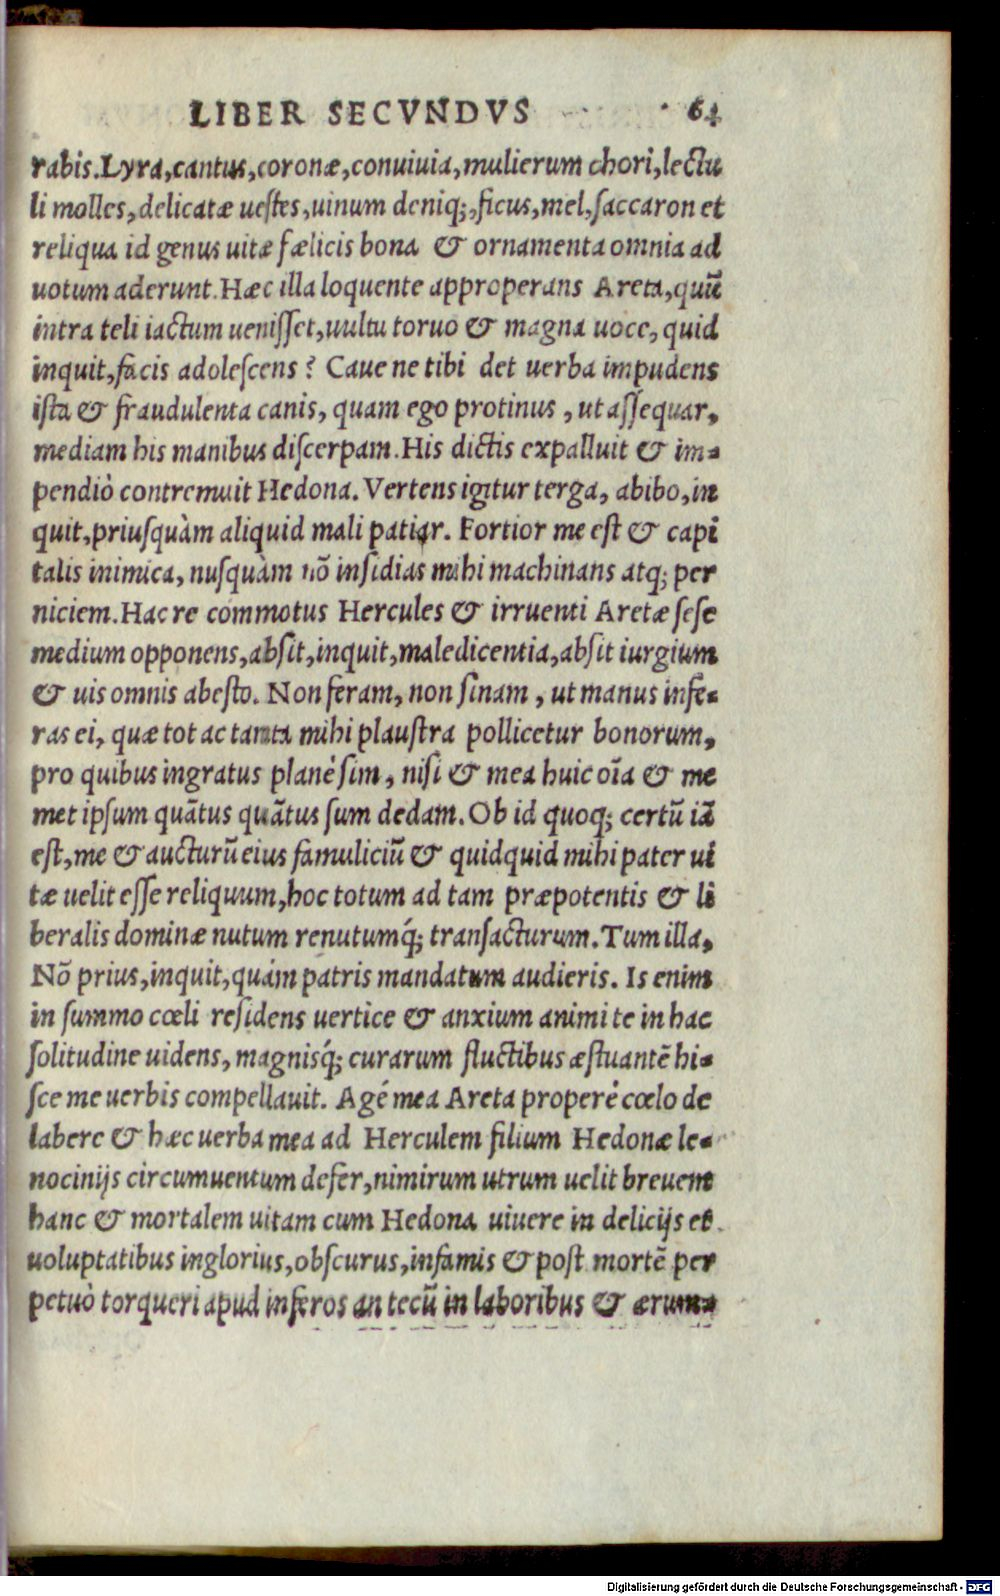 LIBER SECVNDVS 64
rabis.Lyra,cantus,coronæ,conuiuia,mulierum chori,lectu
li molles,delicatæ uestes,uinum deniq;,ficus,mel,saccaron et
reliqua id genus uitæ fælicis bona & ornamenta omnia ad
uotum aderunt.Hæc illa loquente approperans Areta,quũ
intra teli iactum uenisset,uultu toruo & magna uoce,quid
inquit,facis adolescens? Caue ne tibi det uerba impudens
ista & fraudulenta canis, quam ego protinus, ut assequar,
mediam his manibus discerpam.His dictis expalluit & im-
pendiò contremuit Hedona. Vertens igitur terga, abibo,in
quit,priusquàm aliquid mali patiar. Fortior me est & capi
talis inimica, nusquàm nõ insidias mihi machinans atq; per
niciem.Hac re commotus Hercules & irruenti Aretæ sese
medium opponens,absit,inquit,maledicentia,absit iurgium
& uis omnis abesto. Non feram, non sinam, ut manus infe-
ras ei, quæ tot ac tanta mihi plaustra pollicetur bonorum,
pro quibus ingratus planè sim, nisi & mea huic oĩa & me
met ipsum quãtus quãtus sum dedam. Ob id quoq; certũ iã
est,me & aucturũ eius famuliciũ & quidquid mihi pater ui
tæ uelit esse reliquum,hoc totum ad tam præpotentis & li
beralis dominæ nutum renutumq́; transacturum.Tum illa,
Nõ prius,inquit,quàm patris mandatum audieris. Is enim
in summo cœli residens uertice & anxium animi te in hac
solitudine uidens, magnisq́; curarum fluctibus æstuantẽ hi-
sce me uerbis compellauit. Agé mea Areta properè cœlo de
labere & hæc uerba mea ad Herculem filium Hedonæ le-
nocinijs circumuentum defer,nimirum utrum uelit breuem
hanc & mortalem uitam cum Hedona uiuere in delicijs et
uoluptatibus inglorius,obscurus,infamis & post mortẽ per
petuò torqueri apud inferos an tecũ in laboribus & ærum-
Digitalisierung gefördert durch die Deutsche Forschungsgemeinschaft - DFG